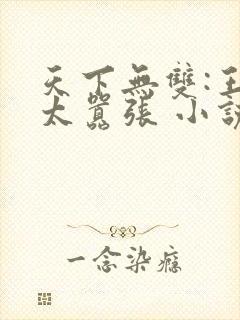 天下無雙:王
太囂張 小說
一念染癮